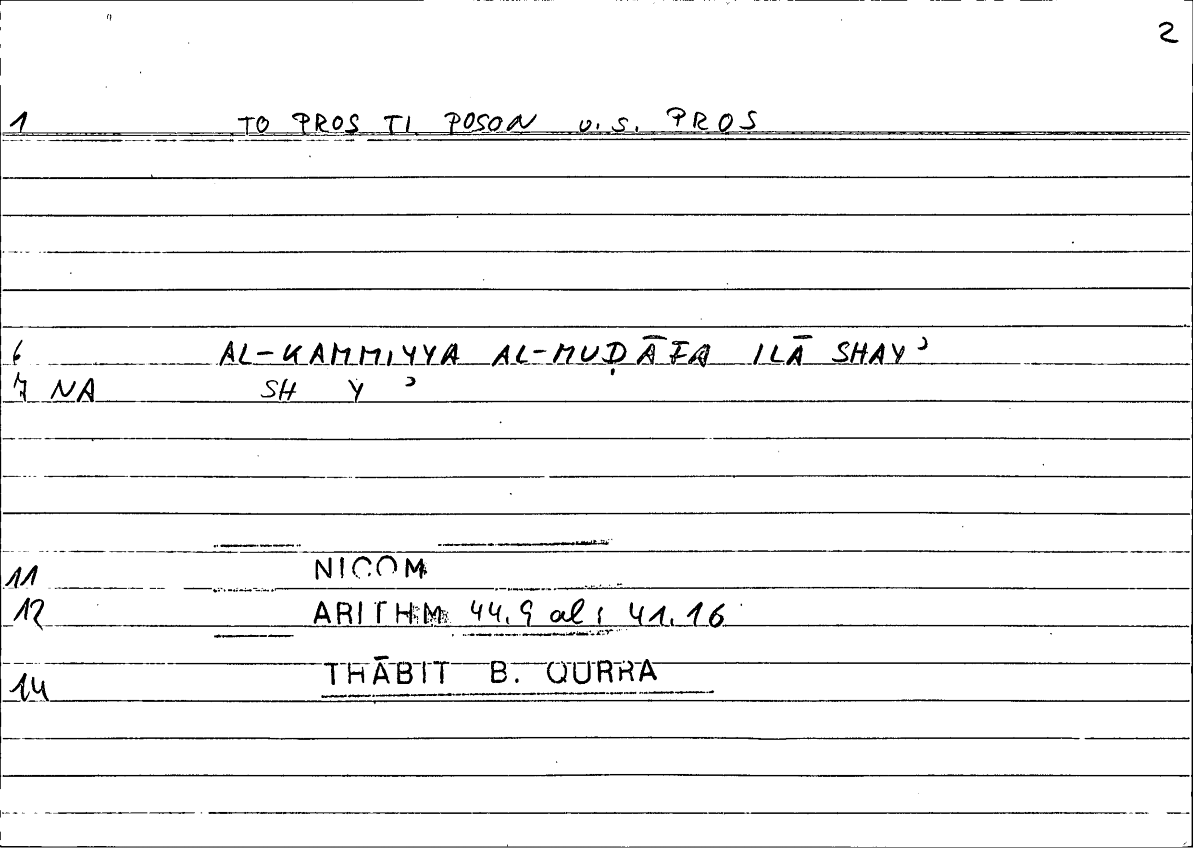 2
1 TO PROS TI POSON v.s. PROS
6 AL-KAMMIYYA AL-MUḌĀFA ILĀ SHAYʾ
7 NA SH Y ʾ
11 NICOM
12 ARITHM 44.9 al; 41.16
14 THĀBIT B. QURRA